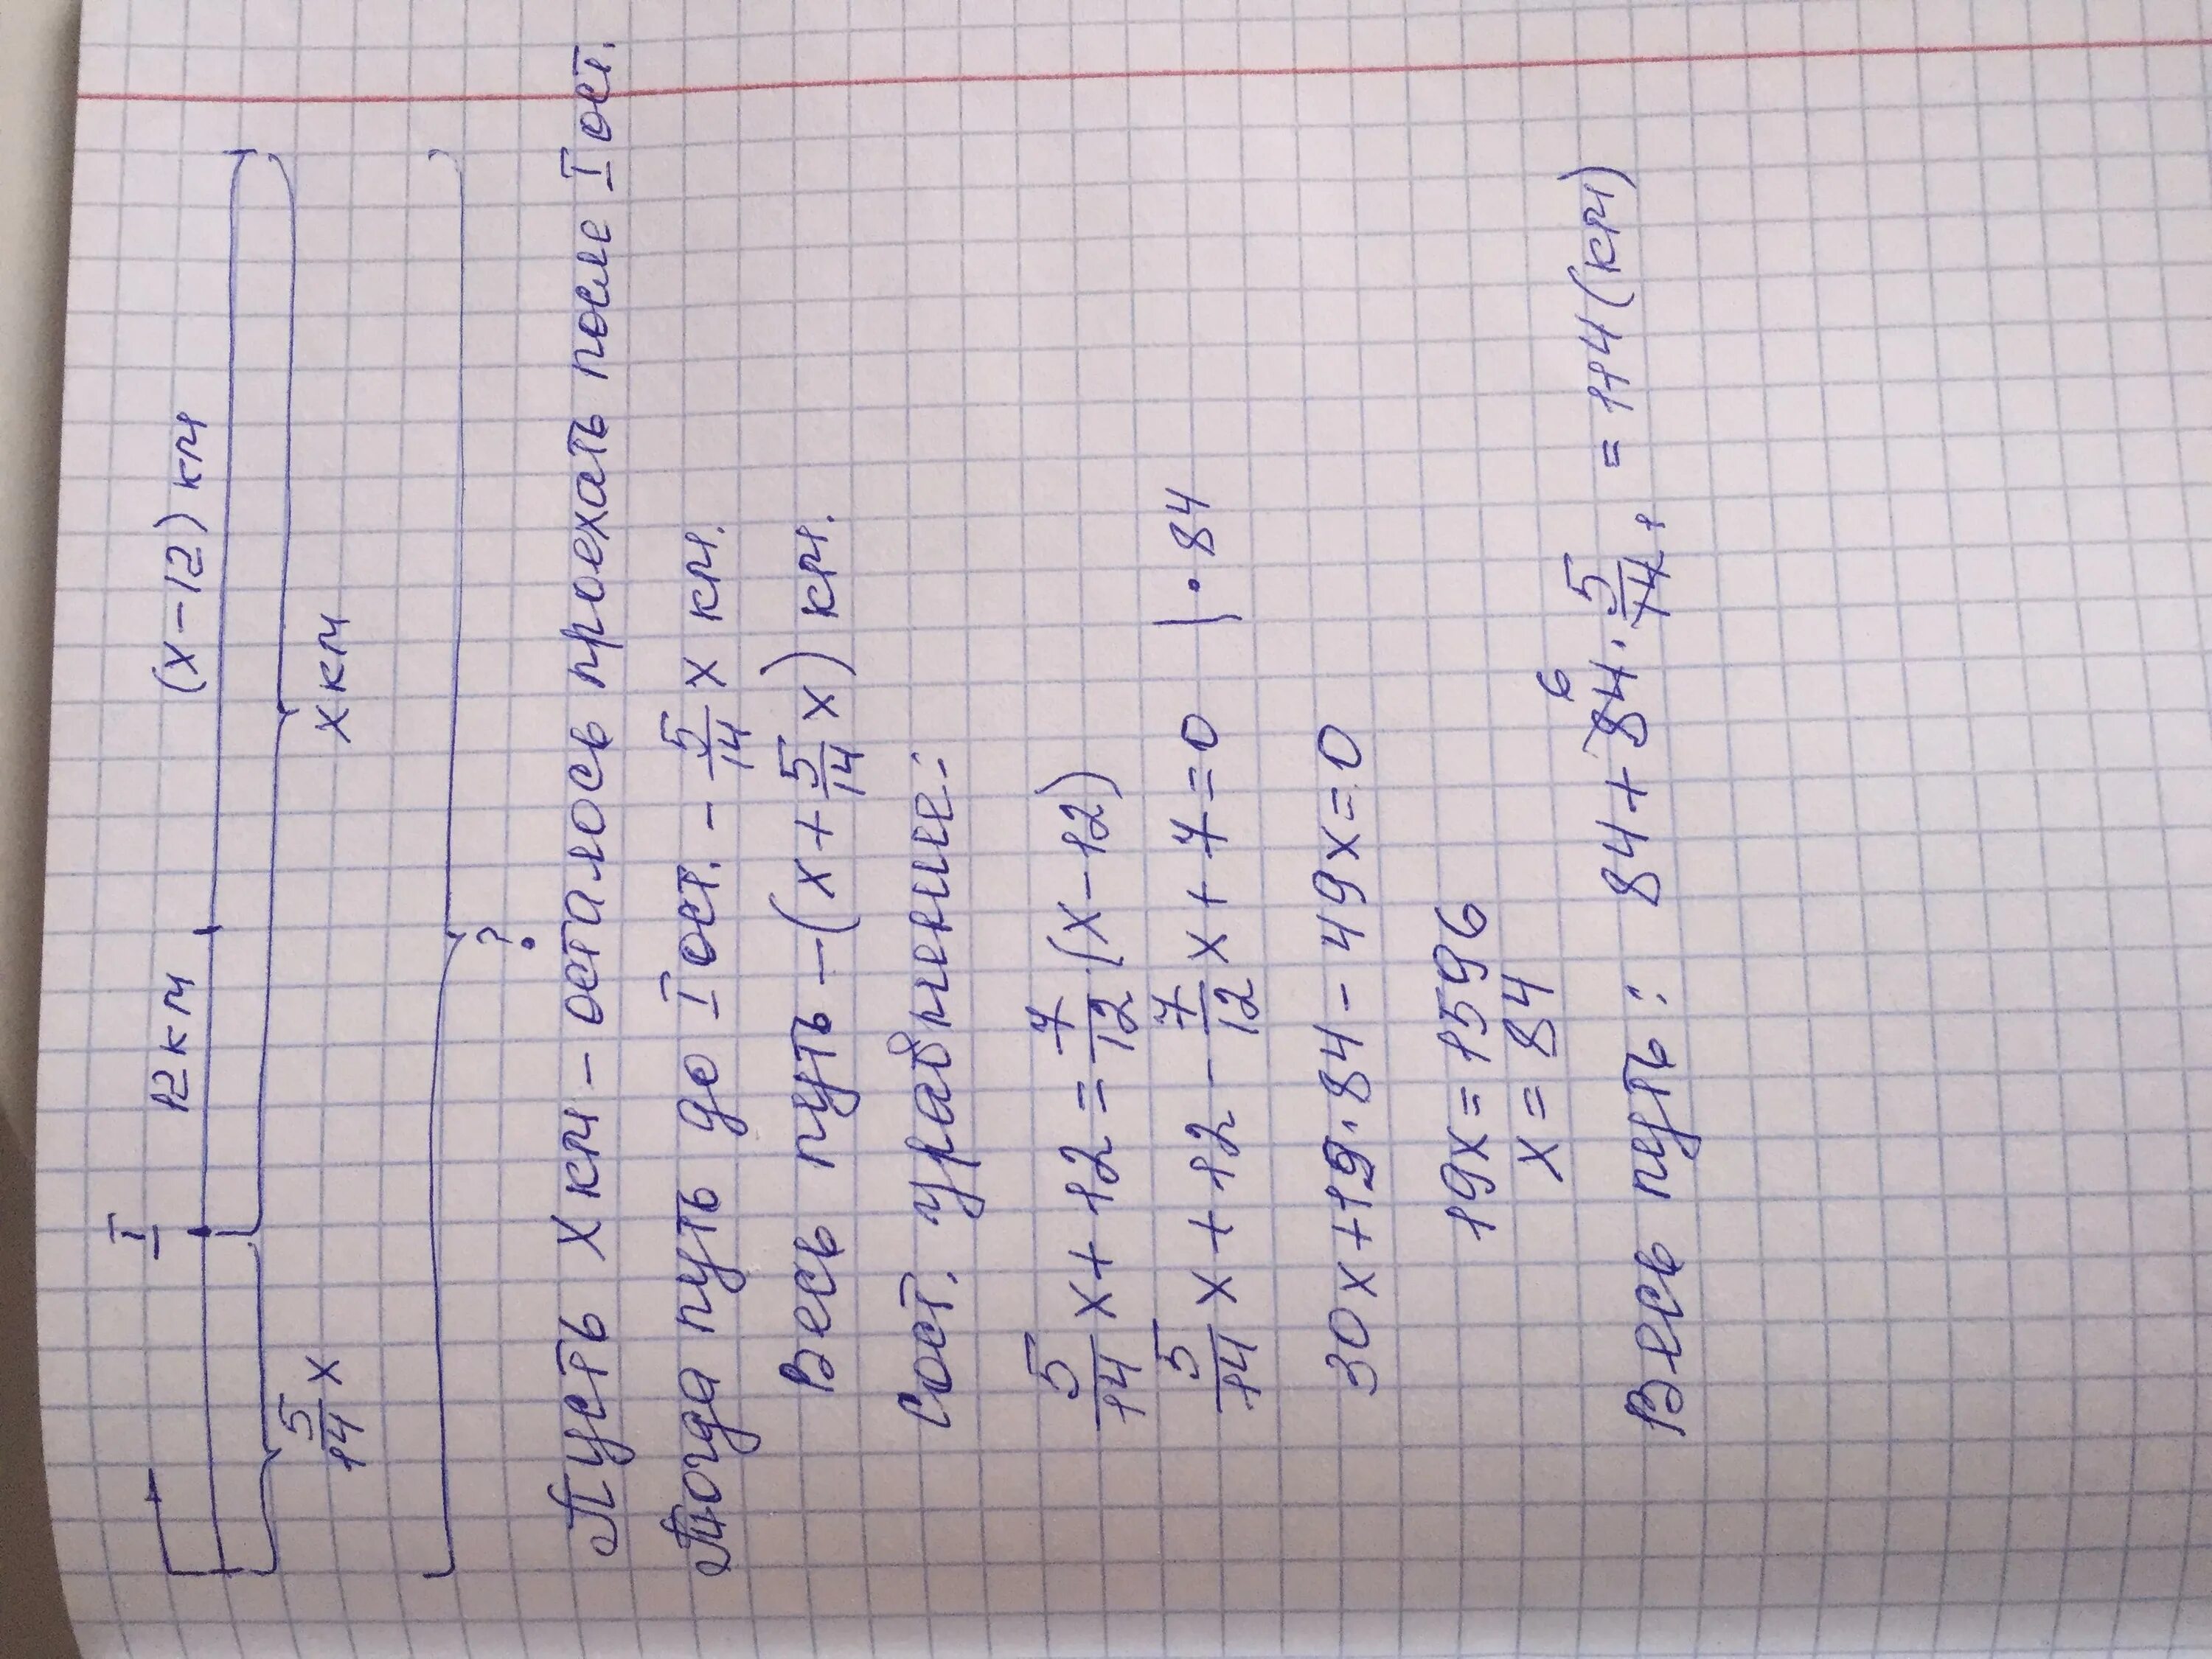 I
12 км (x-12) км
5/14 x
x км
?
Пусть x км - осталось проехать после I ост.
Тогда путь до I ост. - 5/14 x км.
Весь путь - (x + 5/14 x) км.
Сост. уравнение:
5/14 x + 12 = 7/12 (x - 12)
5/14 x + 12 - 7/12 x + 7 = 0 | · 84
30x + 19 · 84 - 49x = 0
19x = 1596
x = 84
Весь путь: 84 + 84 6 · 5/14 1 = 114 (км)